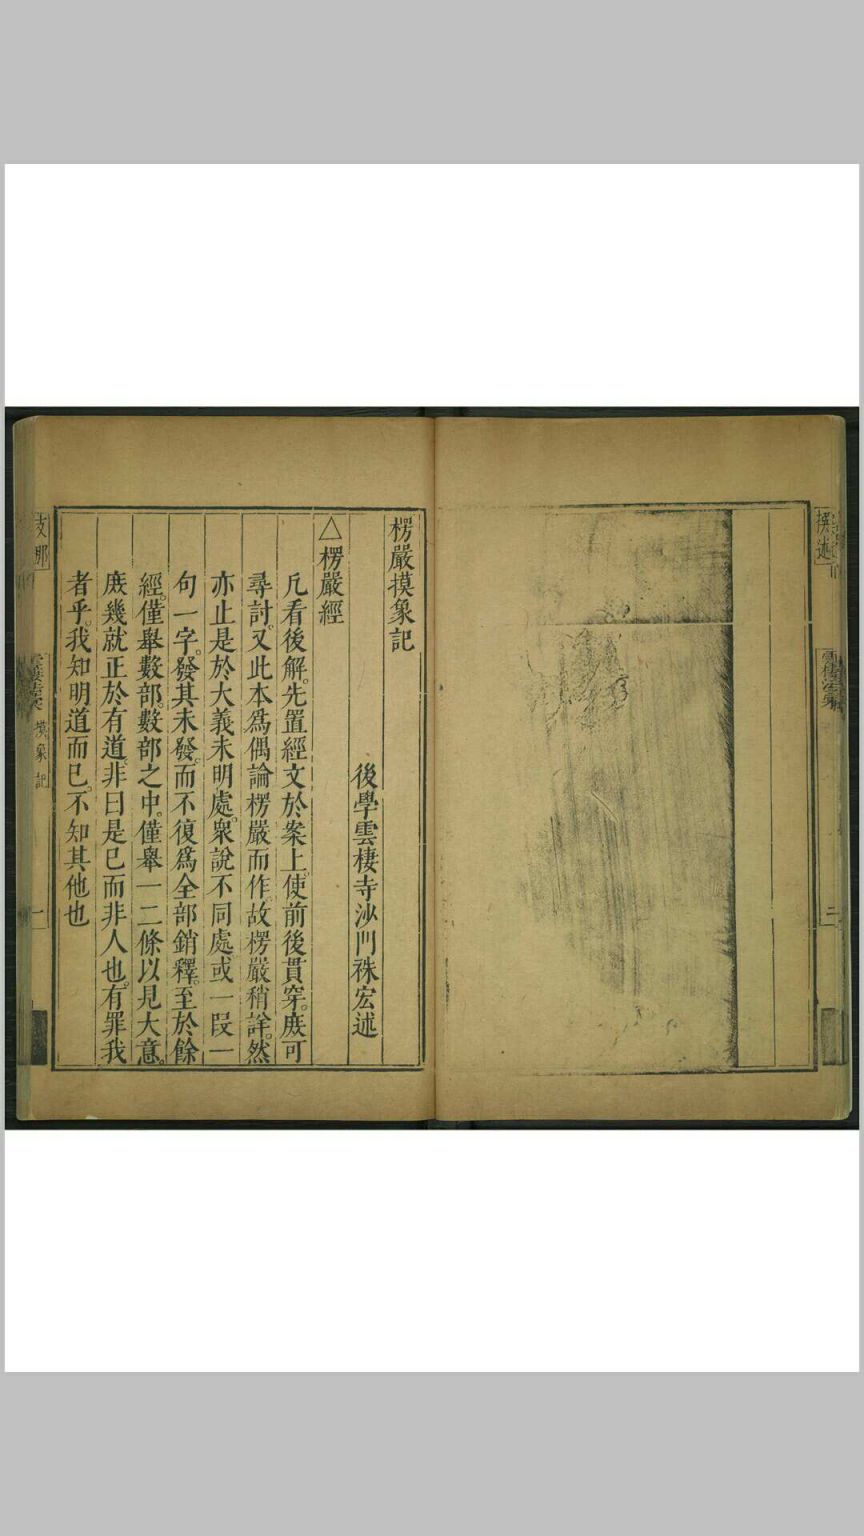 撰述
二
楞嚴摸象記
後學雲棲寺沙門袾宏述
△楞嚴經
凡看後解。先置經文於案上。使前後貫穿。庻可
尋討。又此本爲偶論楞嚴而作。故楞嚴稍詳。然
亦止是於大義未明處。衆說不同處。或一段一
句一字。發其未發。而不復爲全部銷釋。至於餘
經。僅舉數部。數部之中。僅舉一二條以見大意。
庻幾就正於有道。非曰是己而非人也。有罪我
者乎。我知明道而已。不知其他也
支那
摸象記
一